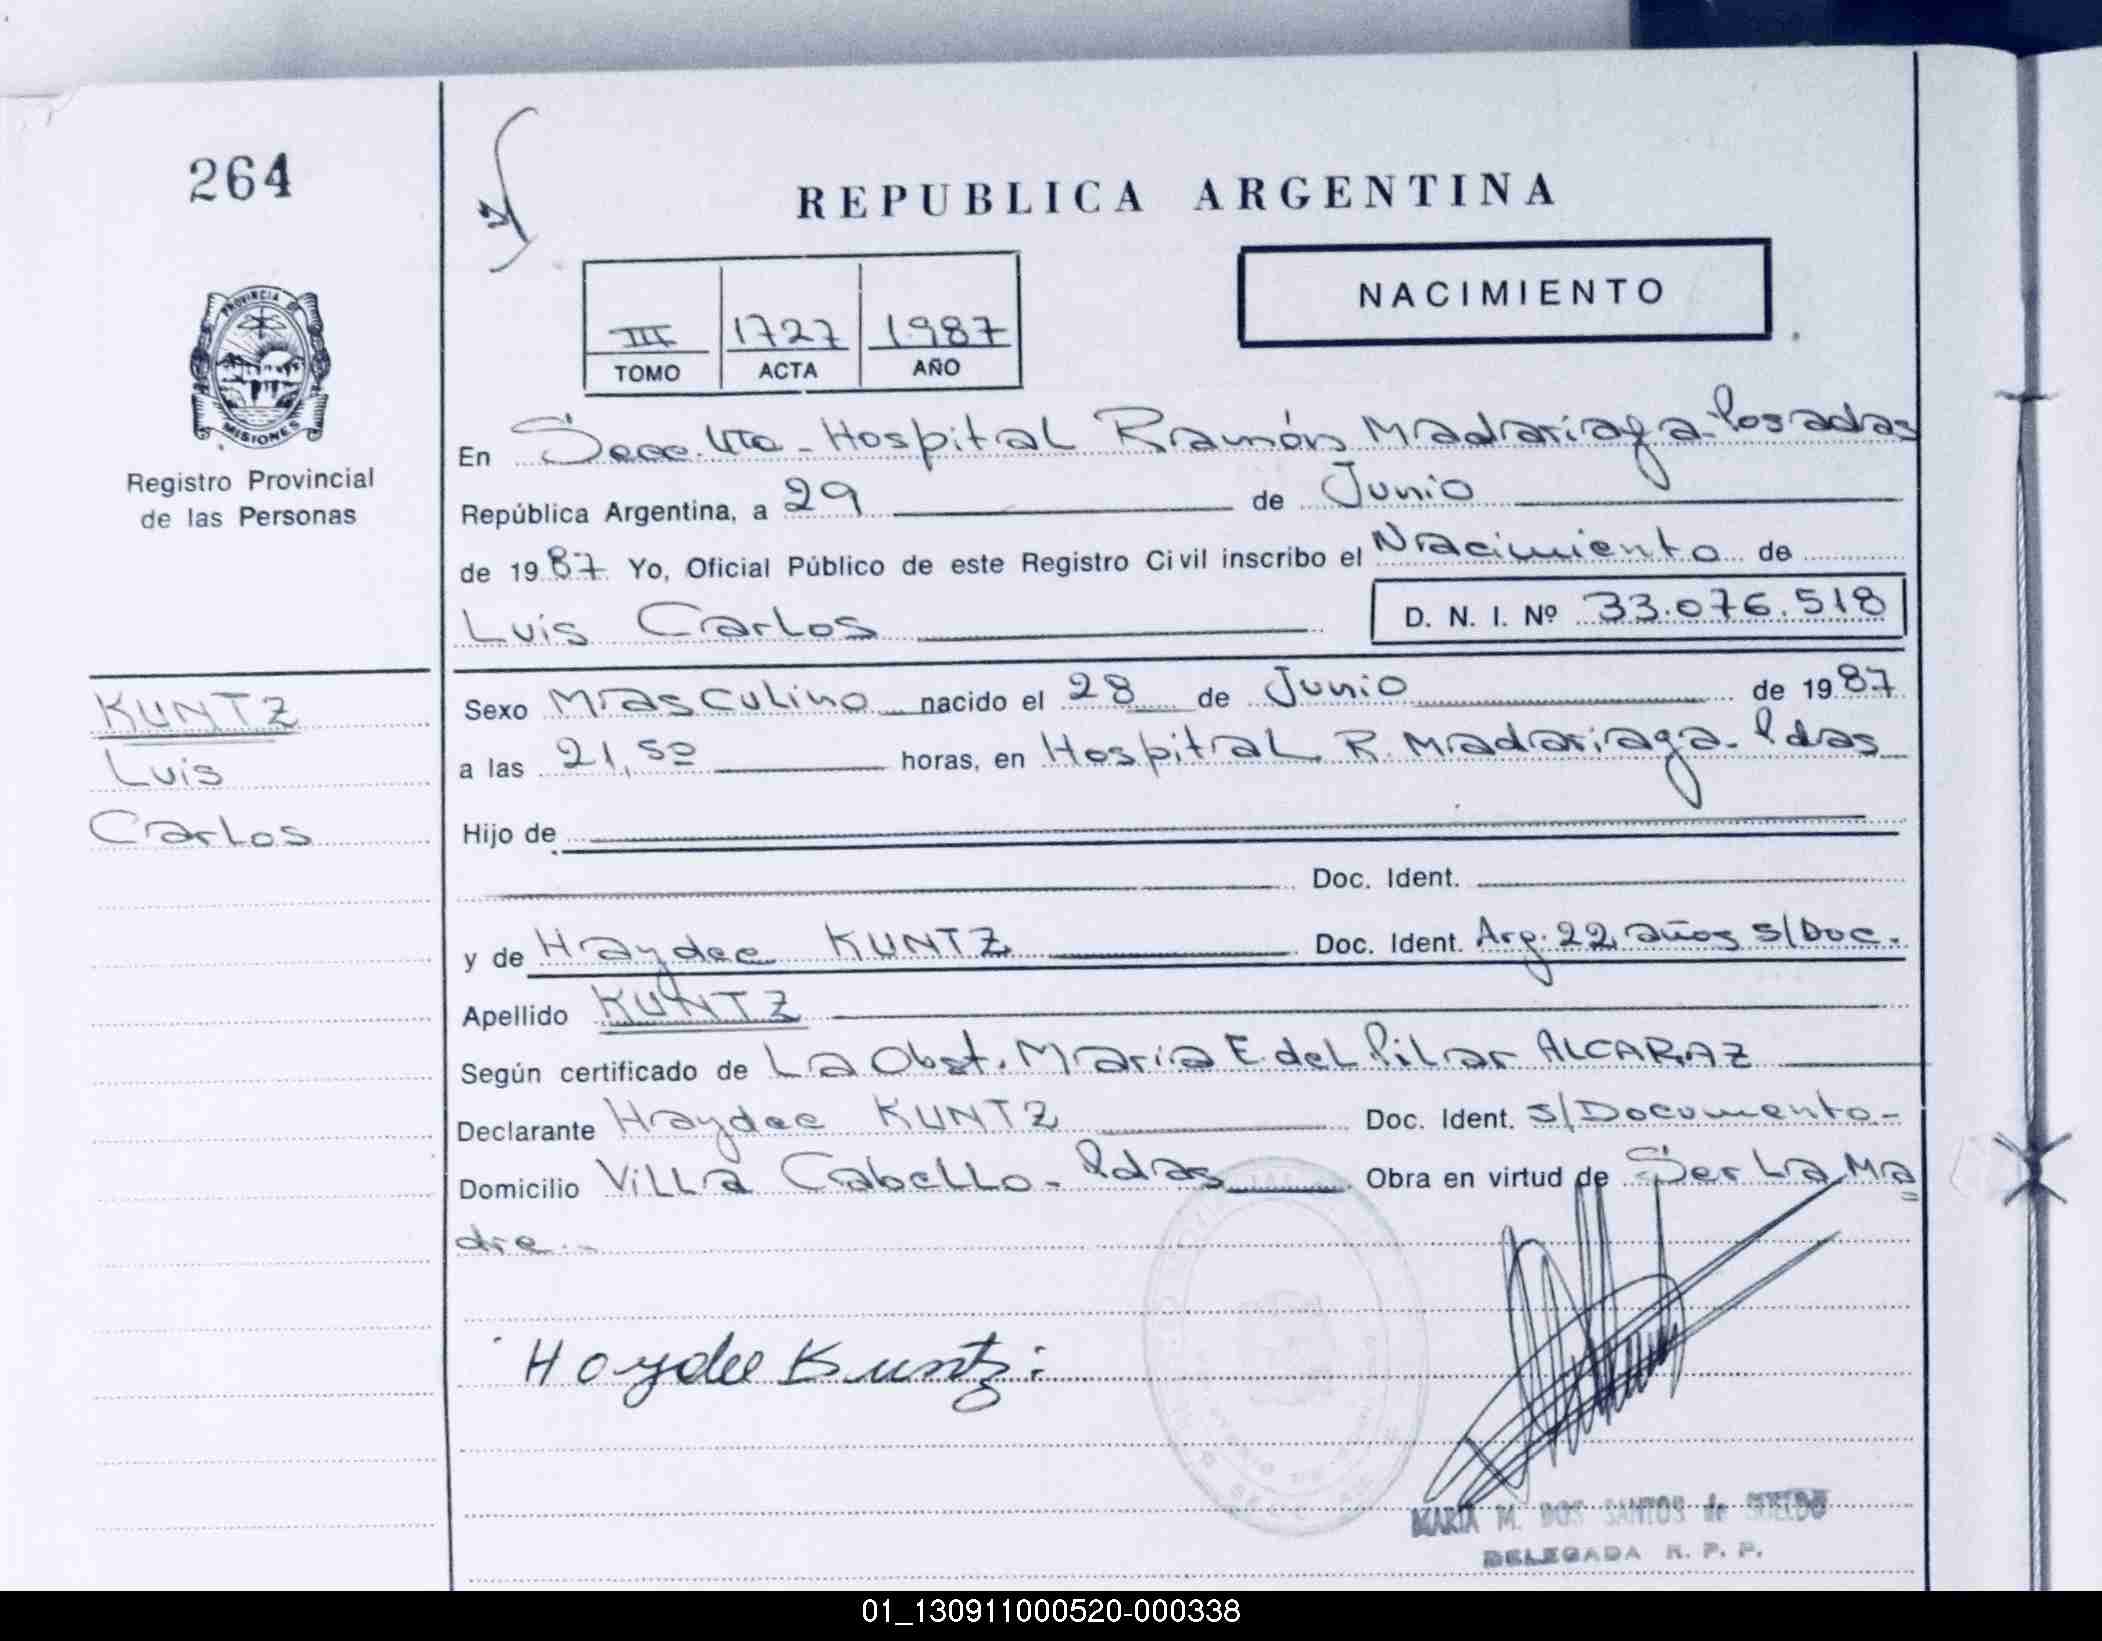 264
REPUBLICA ARGENTINA
NACIMIENTO
III 1727 1987
TOMO ACTA AÑO
PROVINCIA
MISIONES
Registro Provincial
de las Personas
En Secc. 4ta - Hospital Ramón Madariaga - Posadas
República Argentina, a 29 de Junio
de 1987 Yo, Oficial Público de este Registro Civil inscribo el Nacimiento de
Luis Carlos D. N. I. Nº 33.076.518
KUNTZ
Luis
Carlos
Sexo Masculino nacido el 28 de Junio de 1987
a las 21,50 horas, en Hospital R. Madariaga - Pdas
Hijo de
Doc. Ident.
y de Haydee KUNTZ Doc. Ident. Arg. 22 años s/Doc.
Apellido KUNTZ
Según certificado de La Obst. María E. del Pilar ALCARAZ
Declarante Haydee KUNTZ Doc. Ident. s/Documento -
Domicilio Villa Cabello - Pdas Obra en virtud de Ser La Ma
dre. -
Haydee Kuntz
MARIA M. DOS SANTOS de
DELEGADA R. P. P.
01_130911000520-000338